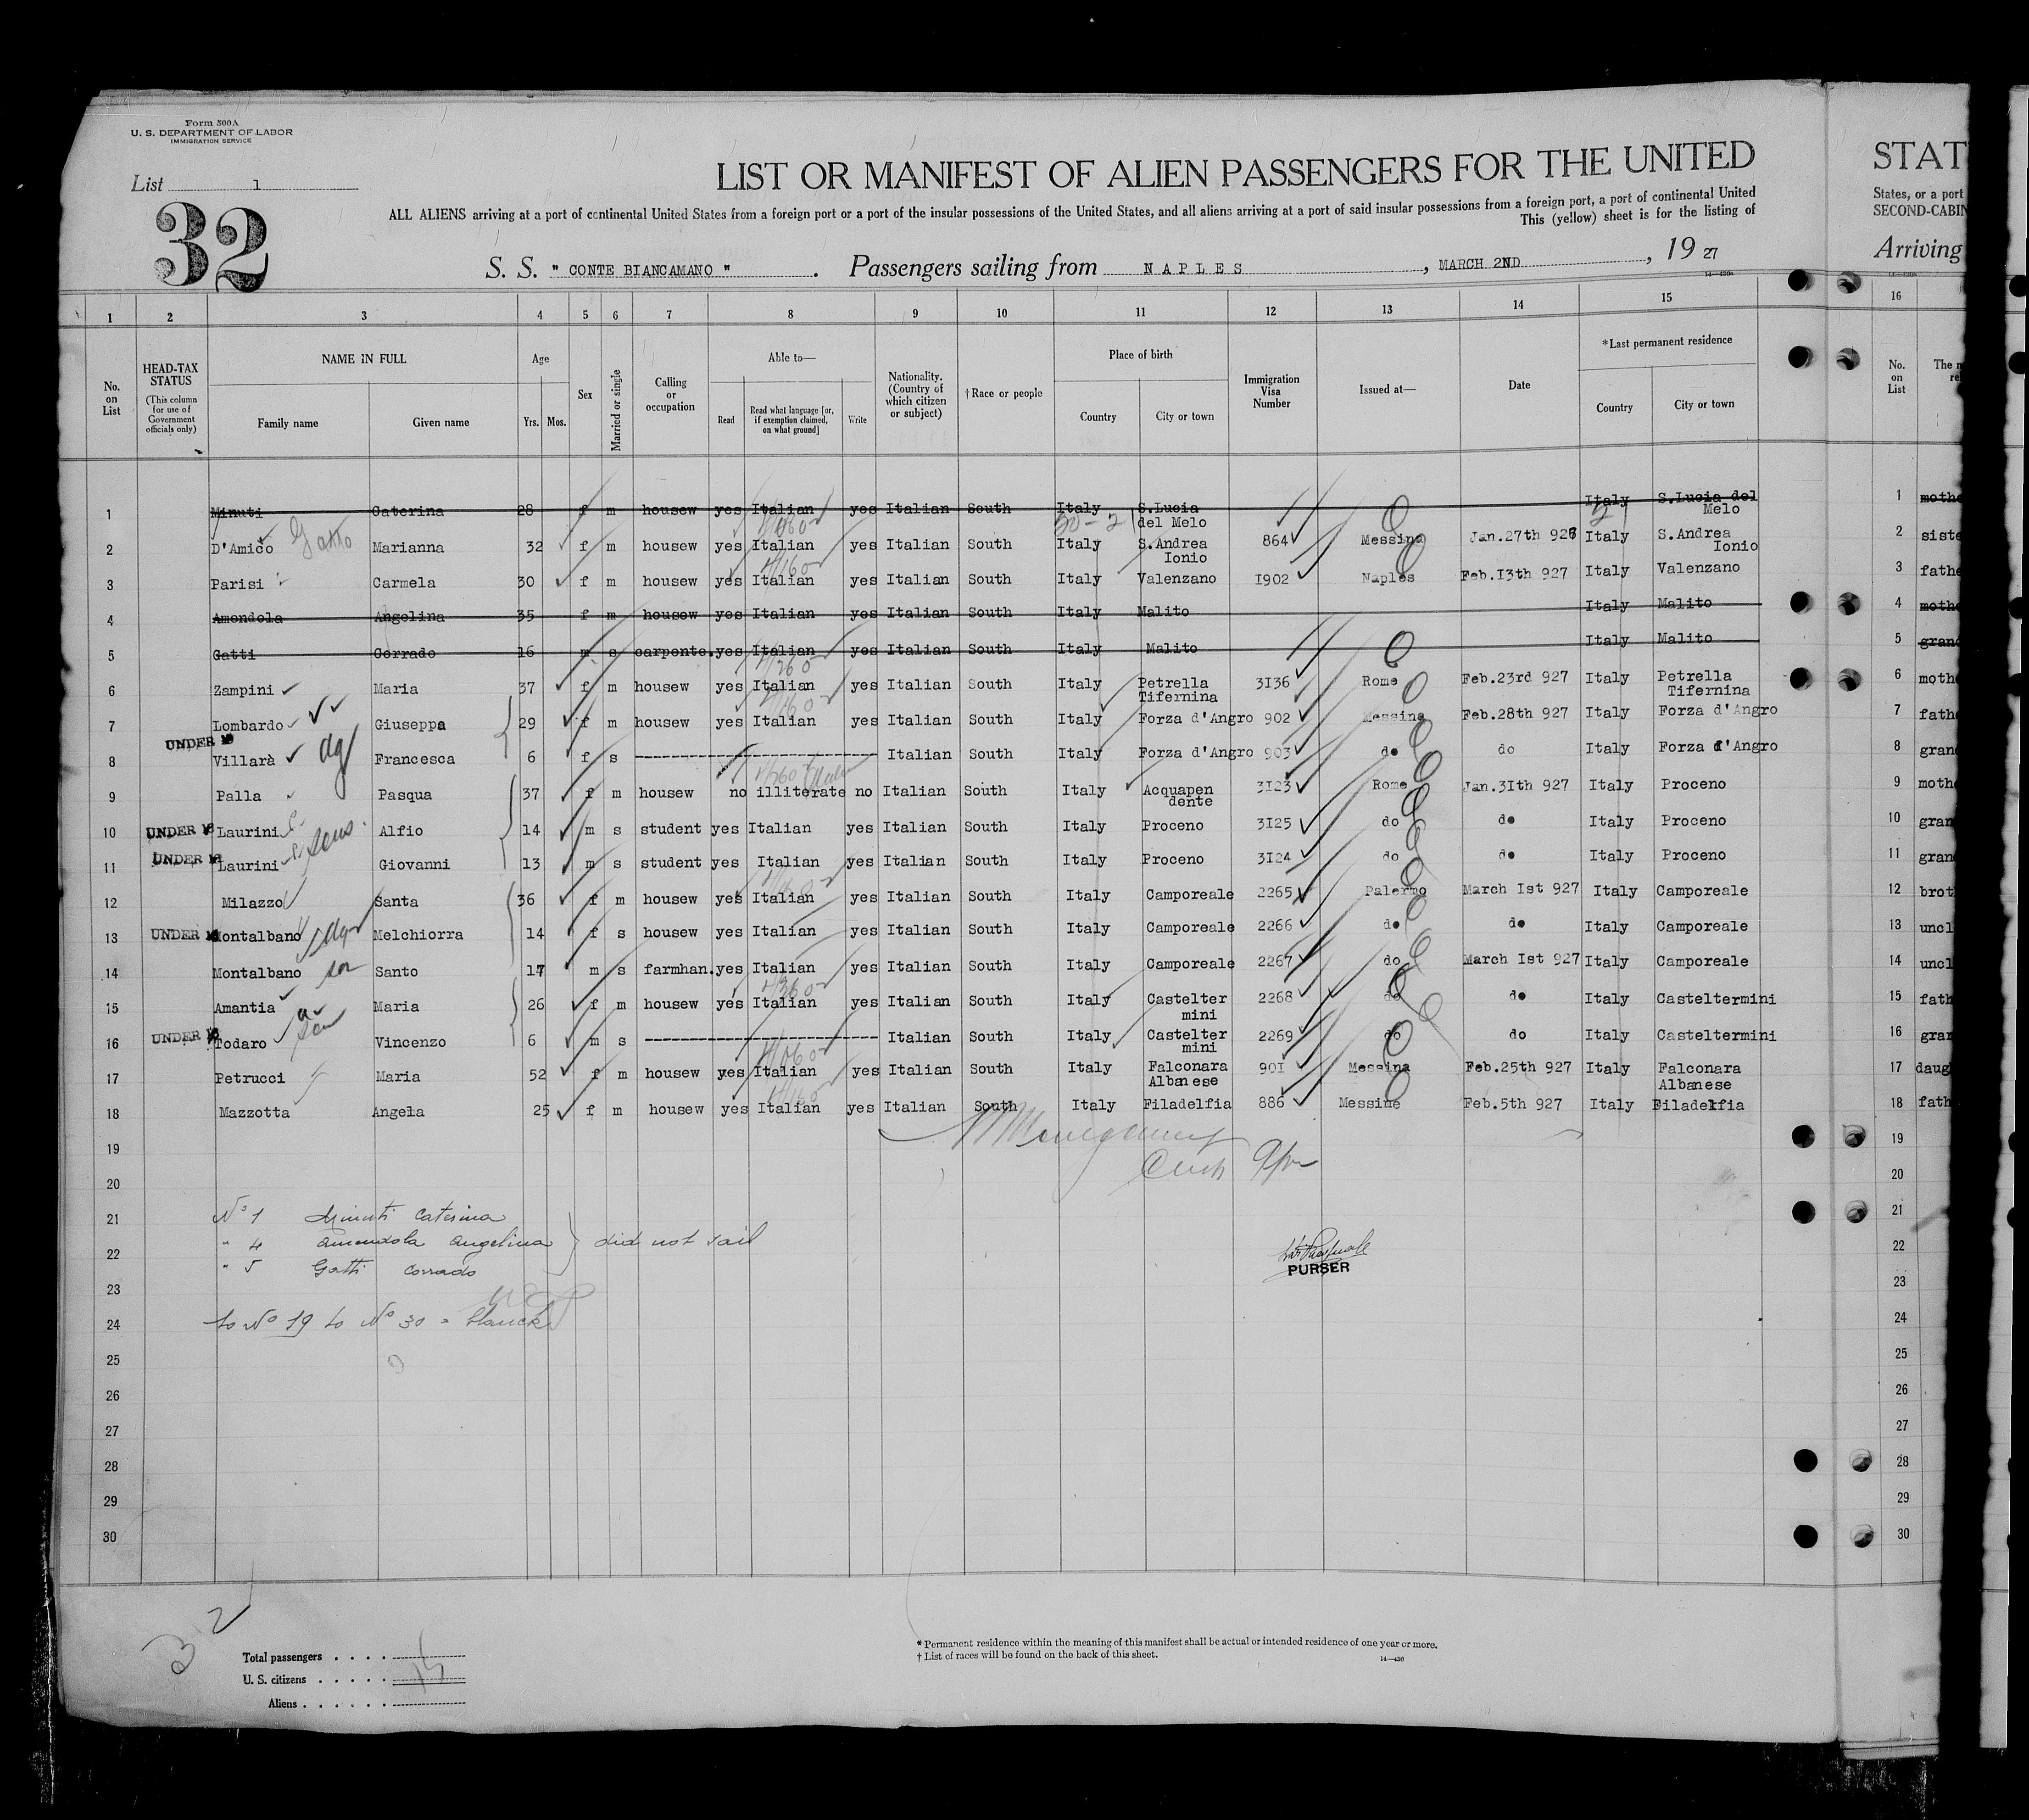 Form 500A
U. S. DEPARTMENT OF LABOR
IMMIGRATION SERVICE
List 1
32
LIST OR MANIFEST OF ALIEN PASSENGERS FOR THE UNITED
ALL ALIENS arriving at a port of continental United States from a foreign port or a port of the insular possessions of the United States, and all aliens arriving at a port of said insular possessions from a foreign port, a port of continental United
This (yellow) sheet is for the listing of
S. S. " CONTE BIANCAMANO " . Passengers sailing from NAPLES , MARCH 2ND , 19 27
STAT
States, or a port
SECOND-CABIN
Arriving
1 2 3 4 5 6 7 8 9 10 11 12 13 14 15 16
No. on List
HEAD-TAX STATUS (This column for use of Government officials only)
NAME IN FULL
Family name Given name
Age
Yrs. Mos.
Sex
Married or single
Calling or occupation
Able to—
Read Read what language [or, if exemption claimed, on what ground] Write
Nationality. (Country of which citizen or subject)
† Race or people
Place of birth
Country City or town
Immigration Visa Number
Issued at—
Date
* Last permanent residence
Country City or town
No. on List
1 Minuti Caterina 28 f m housew yes Italian yes Italian South Italy S.Lucia del Melo Italy S.Lucia del Melo 1 moth
2 D'Amico Gatto Marianna 32 f m housew yes Italian yes Italian South Italy S.Andrea Ionio 864 Messina Jan.27th 927 Italy S.Andrea Ionio 2 siste
3 Parisi Carmela 30 f m housew yes Italian yes Italian South Italy Valenzano I902 Naples Feb.I3th 927 Italy Valenzano 3 fathe
4 Amendola Angelina 35 f m housew yes Italian yes Italian South Italy Malito Italy Malito 4 moth
5 Gatti Corrado 16 m s carpente. yes Italian yes Italian South Italy Malito Italy Malito 5 gran
6 Zampini Maria 37 f m housew yes Italian yes Italian South Italy Petrella Tifernina 3I36 Rome Feb.23rd 927 Italy Petrella Tifernina 6 moth
7 Lombardo Giuseppa 29 f m housew yes Italian yes Italian South Italy Forza d'Angro 902 Messina Feb.28th 927 Italy Forza d'Angro 7 fath
UNDER 18
8 Villarà dgt Francesca 6 f s Italian South Italy Forza d'Angro 903 do do Italy Forza d'Angro 8 gran
9 Palla Pasqua 37 f m housew no illiterate no Italian South Italy Acquapen dente 3I23 Rome Jan.3Ith 927 Italy Proceno 9 moth
10 UNDER 18 Laurini Alfio 14 m s student yes Italian yes Italian South Italy Proceno 3I25 do do Italy Proceno 10 gran
sons
11 UNDER 18 Laurini Giovanni 13 m s student yes Italian yes Italian South Italy Proceno 3I24 do do Italy Proceno 11 gran
12 Milazzo Santa 36 f m housew yes Italian yes Italian South Italy Camporeale 2265 Palermo March Ist 927 Italy Camporeale 12 brot
13 UNDER 18 Montalbano Melchiorra 14 f s housew yes Italian yes Italian South Italy Camporeale 2266 do do Italy Camporeale 13 uncl
14 Montalbano son Santo 17 m s farmhan. yes Italian yes Italian South Italy Camporeale 2267 do March Ist 927 Italy Camporeale 14 uncl
15 Amantia Maria 26 f m housew yes Italian yes Italian South Italy Castelter mini 2268 do do Italy Casteltermini 15 fath
16 UNDER 18 Todaro son Vincenzo 6 m s Italian South Italy Castelter mini 2269 do do Italy Casteltermini 16 gran
17 Petrucci Maria 52 f m housew yes Italian yes Italian South Italy Falconara Albanese 90I Messina Feb.25th 927 Italy Falconara Albanese 17 daug
18 Mazzotta Angela 25 f m housew yes Italian yes Italian South Italy Filadelfia 886 Messina Feb.5th 927 Italy Filadelfia 18 fath
19 19
20 20
21 No 1 Minuti Caterina 21
22 " 4 Amendola Angelina } did not sail 22
" 5 Gatti Corrado
PURSER
23 23
24 to No 19 to No 30 = blanck 24
25 25
26 26
27 27
28 28
29 29
30 30
32
Total passengers
U. S. citizens 15
Aliens
* Permanent residence within the meaning of this manifest shall be actual or intended residence of one year or more.
† List of races will be found on the back of this sheet.
14—430